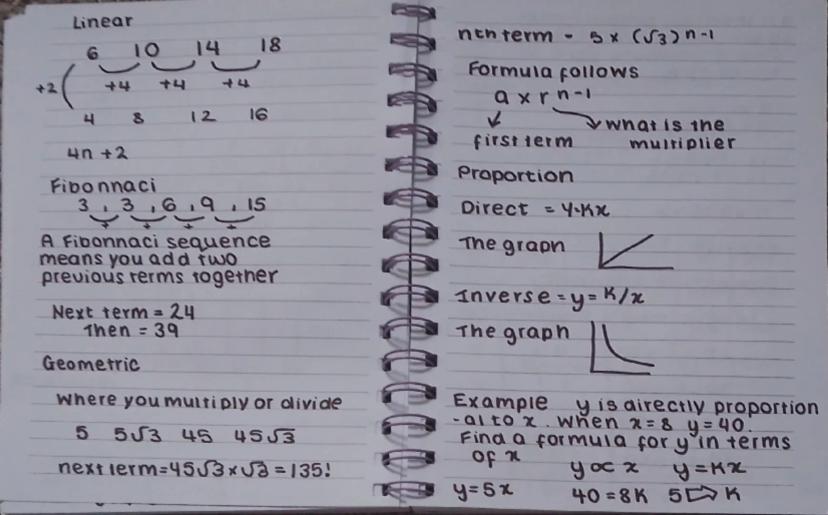 Linear
6 10 14 18
+2 +4 +4 +4
4 8 12 16
4n +2
Fibonnaci
3 , 3 , 6 , 9 , 15
+ + + +
A Fibonnaci sequence
means you add two
previous terms together
Next term = 24
Then = 39
Geometric
where you multiply or divide
5 5√3 45 45√3
next term=45√3×√3=135!
nth term - 5 × (√3) n-1
Formula follows
a × r n-1
first term what is the
multiplier
Proportion
Direct = y=Kx
The graph
Inverse = y= K/x
The graph
Example y is directly proportion
-al to x. when x=8 y=40.
Find a formula for y in terms
of x
y ∝ x y=Kx
y=5x 40=8K 5⇨K